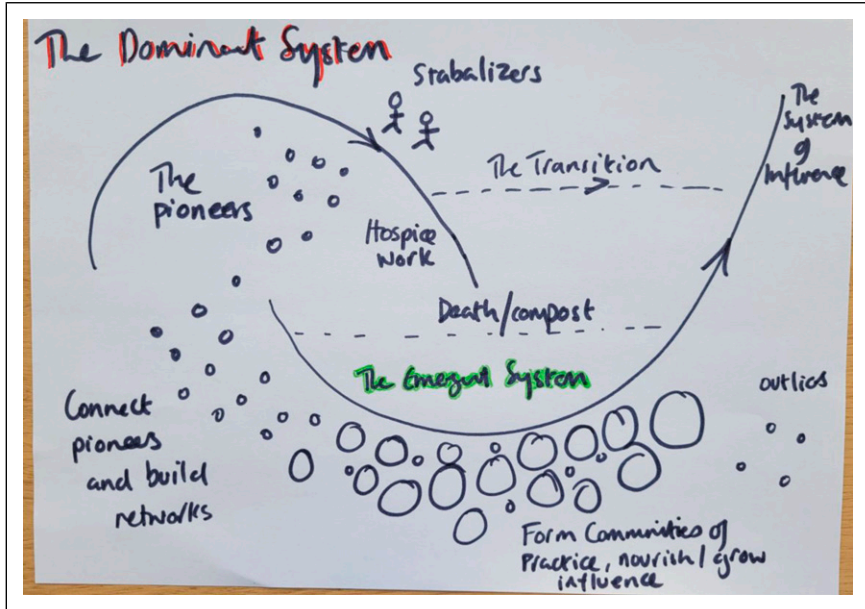 The Dominant System
Stabalizers
The
System
of
Inference
The Transition
The
pioneers
Hospice
work
Death/compost
The Emergent System
outlies
Connect
pioneers
and build
networks
Form Communities of
Practice, nourish/grow
influence